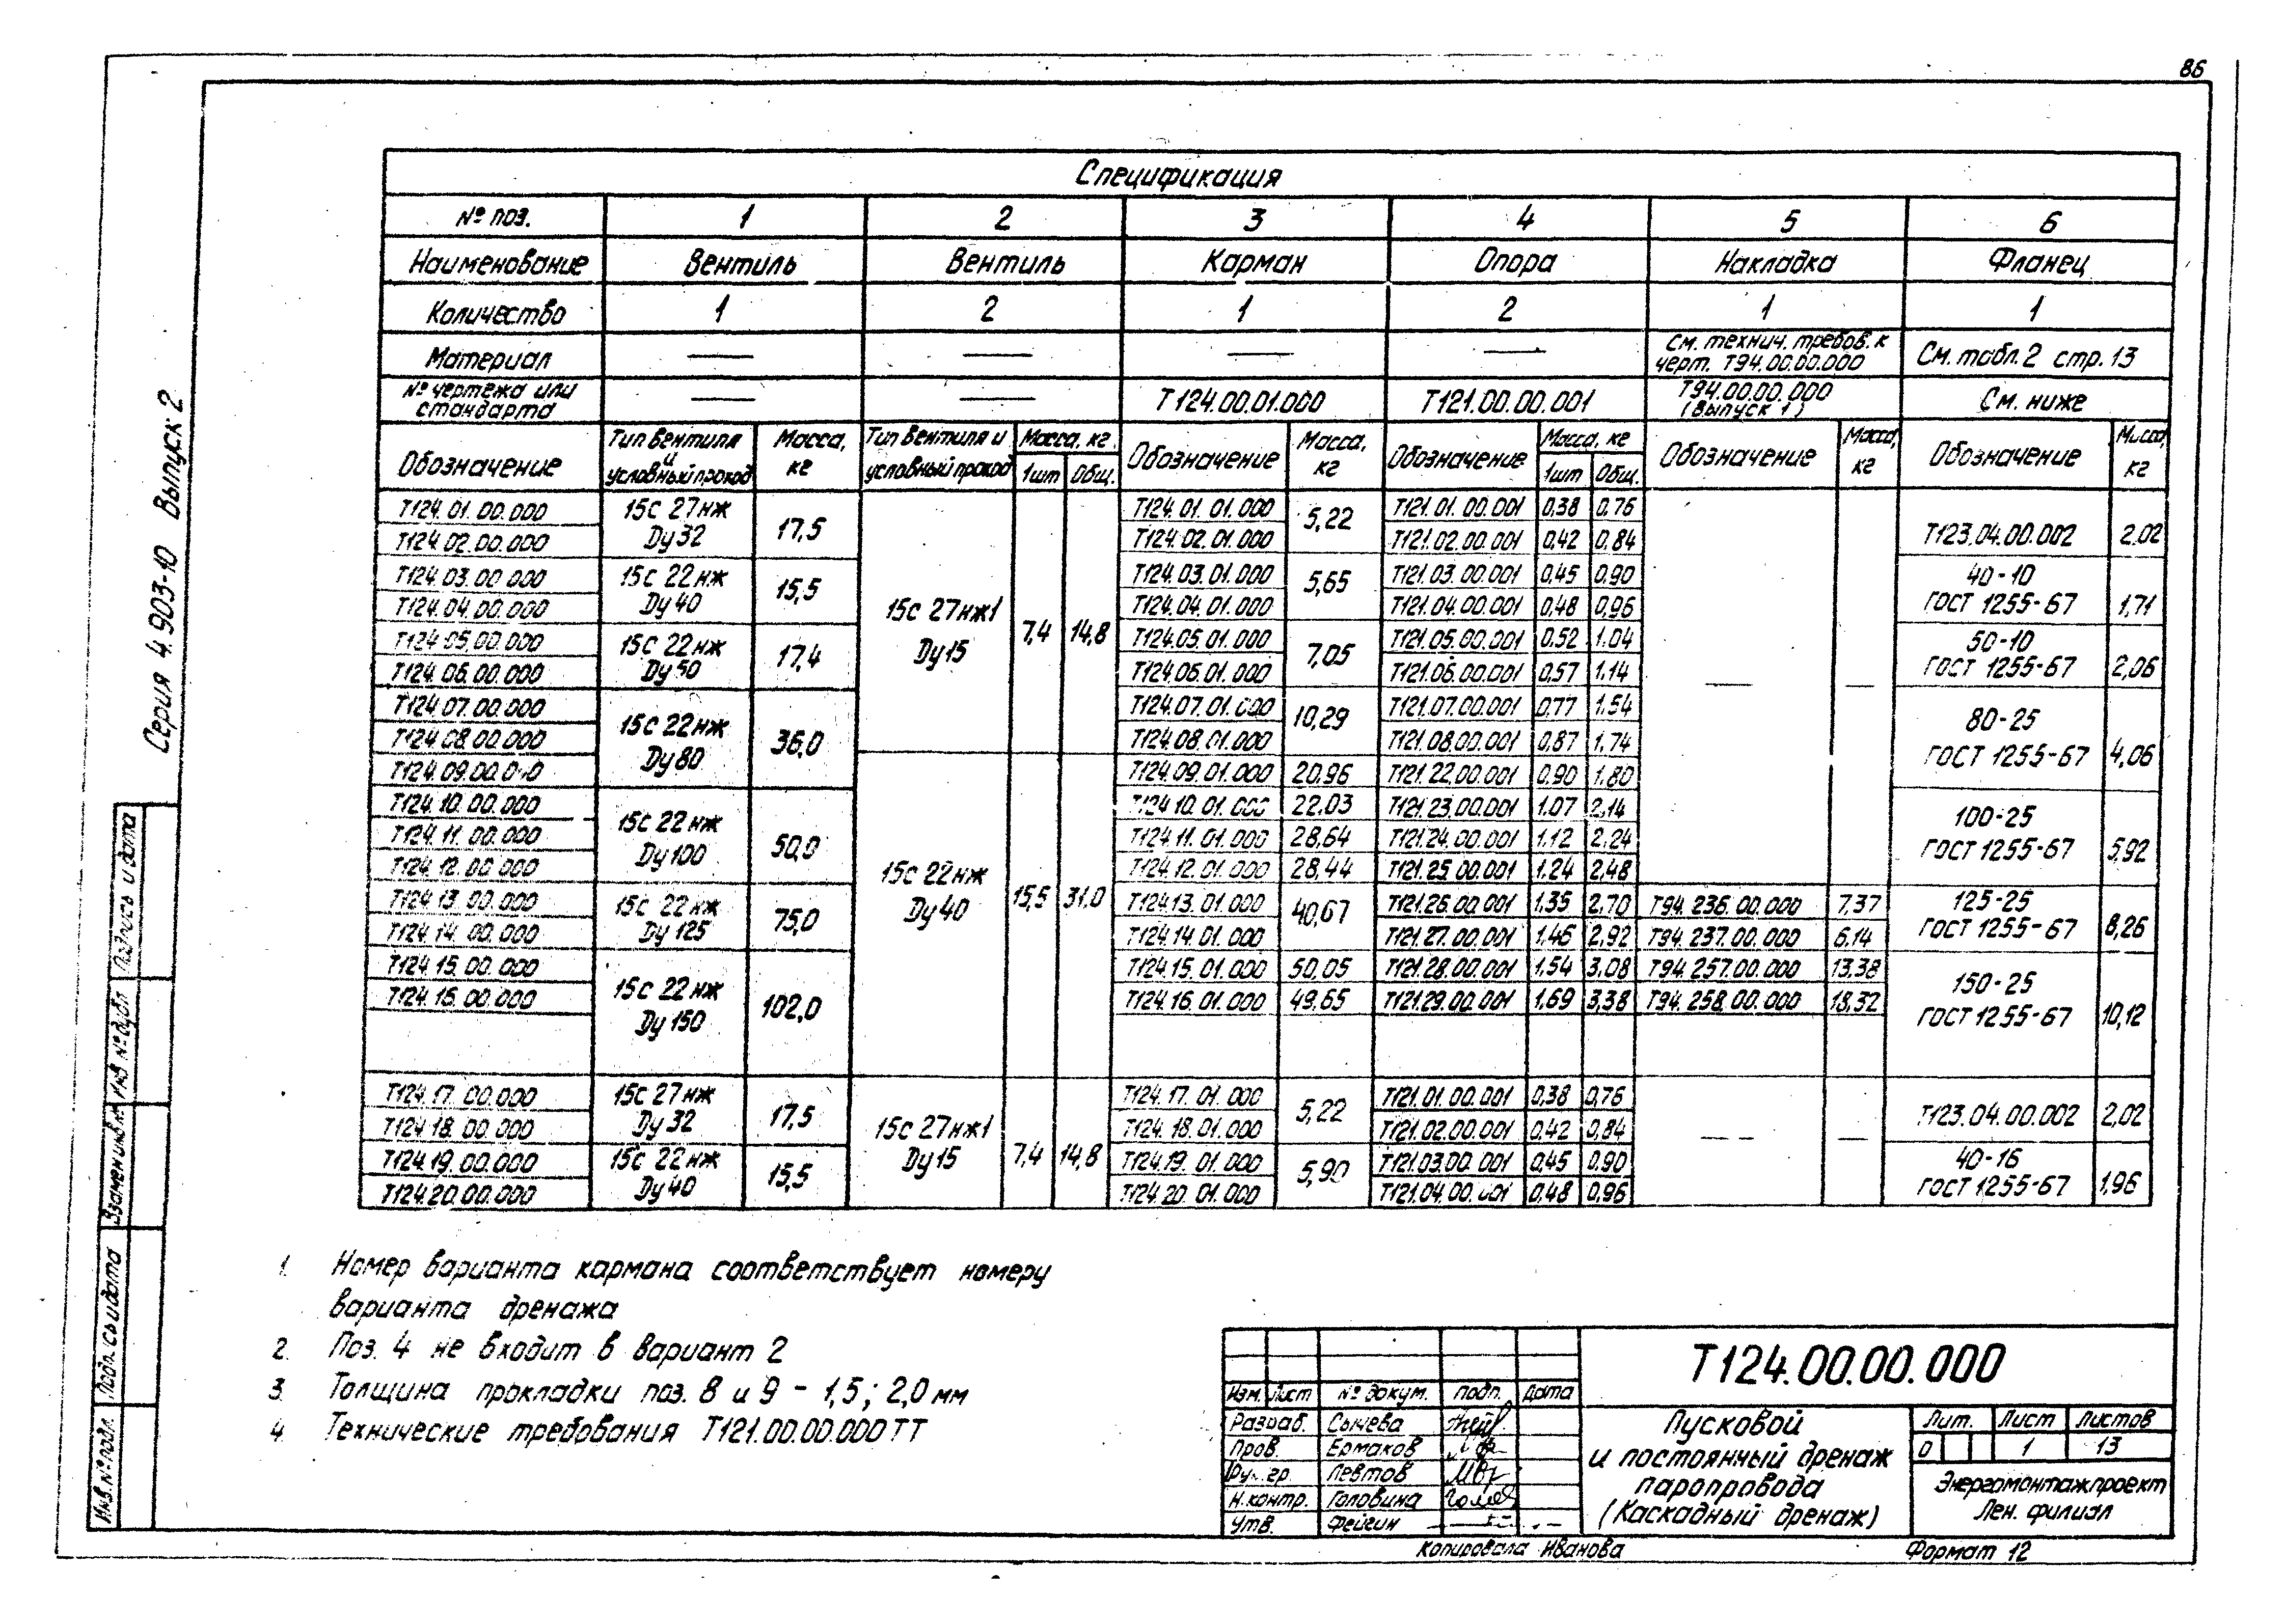 86
Серия 4.903-10 Выпуск 2
Спецификация
№ поз. 1 2 3 4 5 6
Наименование Вентиль Вентиль Карман Опора Накладка Фланец
Количество 1 2 1 2 1 1
Материал — — — — См. технич. требов. к черт. Т94.00.00.000 См. табл. 2 стр. 13
№ чертежа или стандарта — — Т124.00.01.000 Т121.00.00.001 Т94.00.00.000 (Выпуск 1) См. ниже
Обозначение Тип вентиля и условный проход Масса, кг Тип вентиля и условный проход Масса, кг 1шт Общ. Обозначение Масса, кг Обозначение Масса, кг 1шт Общ. Обозначение Масса, кг Обозначение Масса, кг
Т124.01.00.000 15с 27нж Ду 32 17,5 15с 27нж1 Ду 15 7,4 14,8 Т124.01.01.000 5,22 Т121.01.00.001 0,38 0,76 — — Т123.04.00.002 2.02
Т124.02.00.000 Т124.02.01.000 Т121.02.00.001 0,42 0,84
Т124.03.00.000 15с 22нж Ду 40 15,5 Т124.03.01.000 5,65 Т121.03.00.001 0,45 0,90 40-10 ГОСТ 1255-67 1,71
Т124.04.00.000 Т124.04.01.000 Т121.04.00.001 0,48 0,96
Т124.05.00.000 15с 22нж Ду 50 17,4 Т124.05.01.000 7,05 Т121.05.00.001 0.52 1.04 50-10 ГОСТ 1255-67 2,06
Т124.06.00.000 Т124.06.01.000 Т121.06.00.001 0,57 1.14
Т124.07.00.000 15с 22нж Ду 80 36,0 Т124.07.01.000 10,29 Т121.07.00.001 0,77 1.54 80-25 ГОСТ 1255-67 4,06
Т124.08.00.000 Т124.08.01.000 Т121.08.00.001 0,87 1,74
Т124.09.00.000 15с 22нж Ду 40 15,5 31.0 Т124.09.01.000 20,96 Т121.22.00.001 0,90 1.80
Т124.10.00.000 15с 22нж Ду 100 50,0 Т124.10.01.000 22,03 Т121.23.00.001 1.07 2,14 100-25 ГОСТ 1255-67 5,92
Т124.11.00.000 Т124.11.01.000 28,64 Т121.24.00.001 1.12 2,24
Т124.12.00.000 Т124.12.01.000 28,44 Т121.25.00.001 1.24 2,48
Т124.13.00.000 15с 22нж Ду 125 75,0 Т124.13.01.000 40,67 Т121.26.00.001 1.35 2,70 Т94.236.00.000 7.37 125-25 ГОСТ 1255-67 8,26
Т124.14.00.000 Т124.14.01.000 Т121.27.00.001 1,46 2,92 Т94.237.00.000 6.14
Т124.15.00.000 15с 22нж Ду 150 102,0 Т124.15.01.000 50,05 Т121.28.00.001 1.54 3,08 Т94.257.00.000 13,38 150-25 ГОСТ 1255-67 10,12
Т124.16.00.000 Т124.16.01.000 49,65 Т121.29.00.001 1.69 3,38 Т94.258.00.000 18,32
Т124.17.00.000 15с 27нж Ду 32 17,5 15с 27нж1 Ду 15 7,4 14,8 Т124.17.01.000 5,22 Т121.01.00.001 0,38 0,76 — — Т123.04.00.002 2,02
Т124.18.00.000 Т124.18.01.000 Т121.02.00.001 0,42 0,84
Т124.19.00.000 15с 22нж Ду 40 15,5 Т124.19.01.000 5,90 Т121.03.00.001 0,45 0,90 40-16 ГОСТ 1255-67 1,96
Т124.20.00.000 Т124.20.01.000 Т121.04.00.001 0,48 0,96
1. Номер варианта кармана соответствует номеру
варианта дренажа
2. Поз. 4 не входит в вариант 2
3. Толщина прокладки поз. 8 и 9 - 1,5; 2,0 мм
4. Технические требования Т121.00.00.000 ТТ
Т124.00.00.000
Изм. Лист № докум. Подп. Дата
Разраб. Сычева
Пров. Ермаков
Рук. гр. Левтов
Н.контр. Головина
Утв. Фейгин
Пусковой
и постоянный дренаж
паропровода
(Каскадный дренаж)
Лит. Лист Листов
О 1 13
Энергомонтажпроект
Лен. филиал
Копировала Иванова Формат 12
Инв. № подл. Подпись и дата Взамен инв. № Инв. № дубл. Подпись и дата